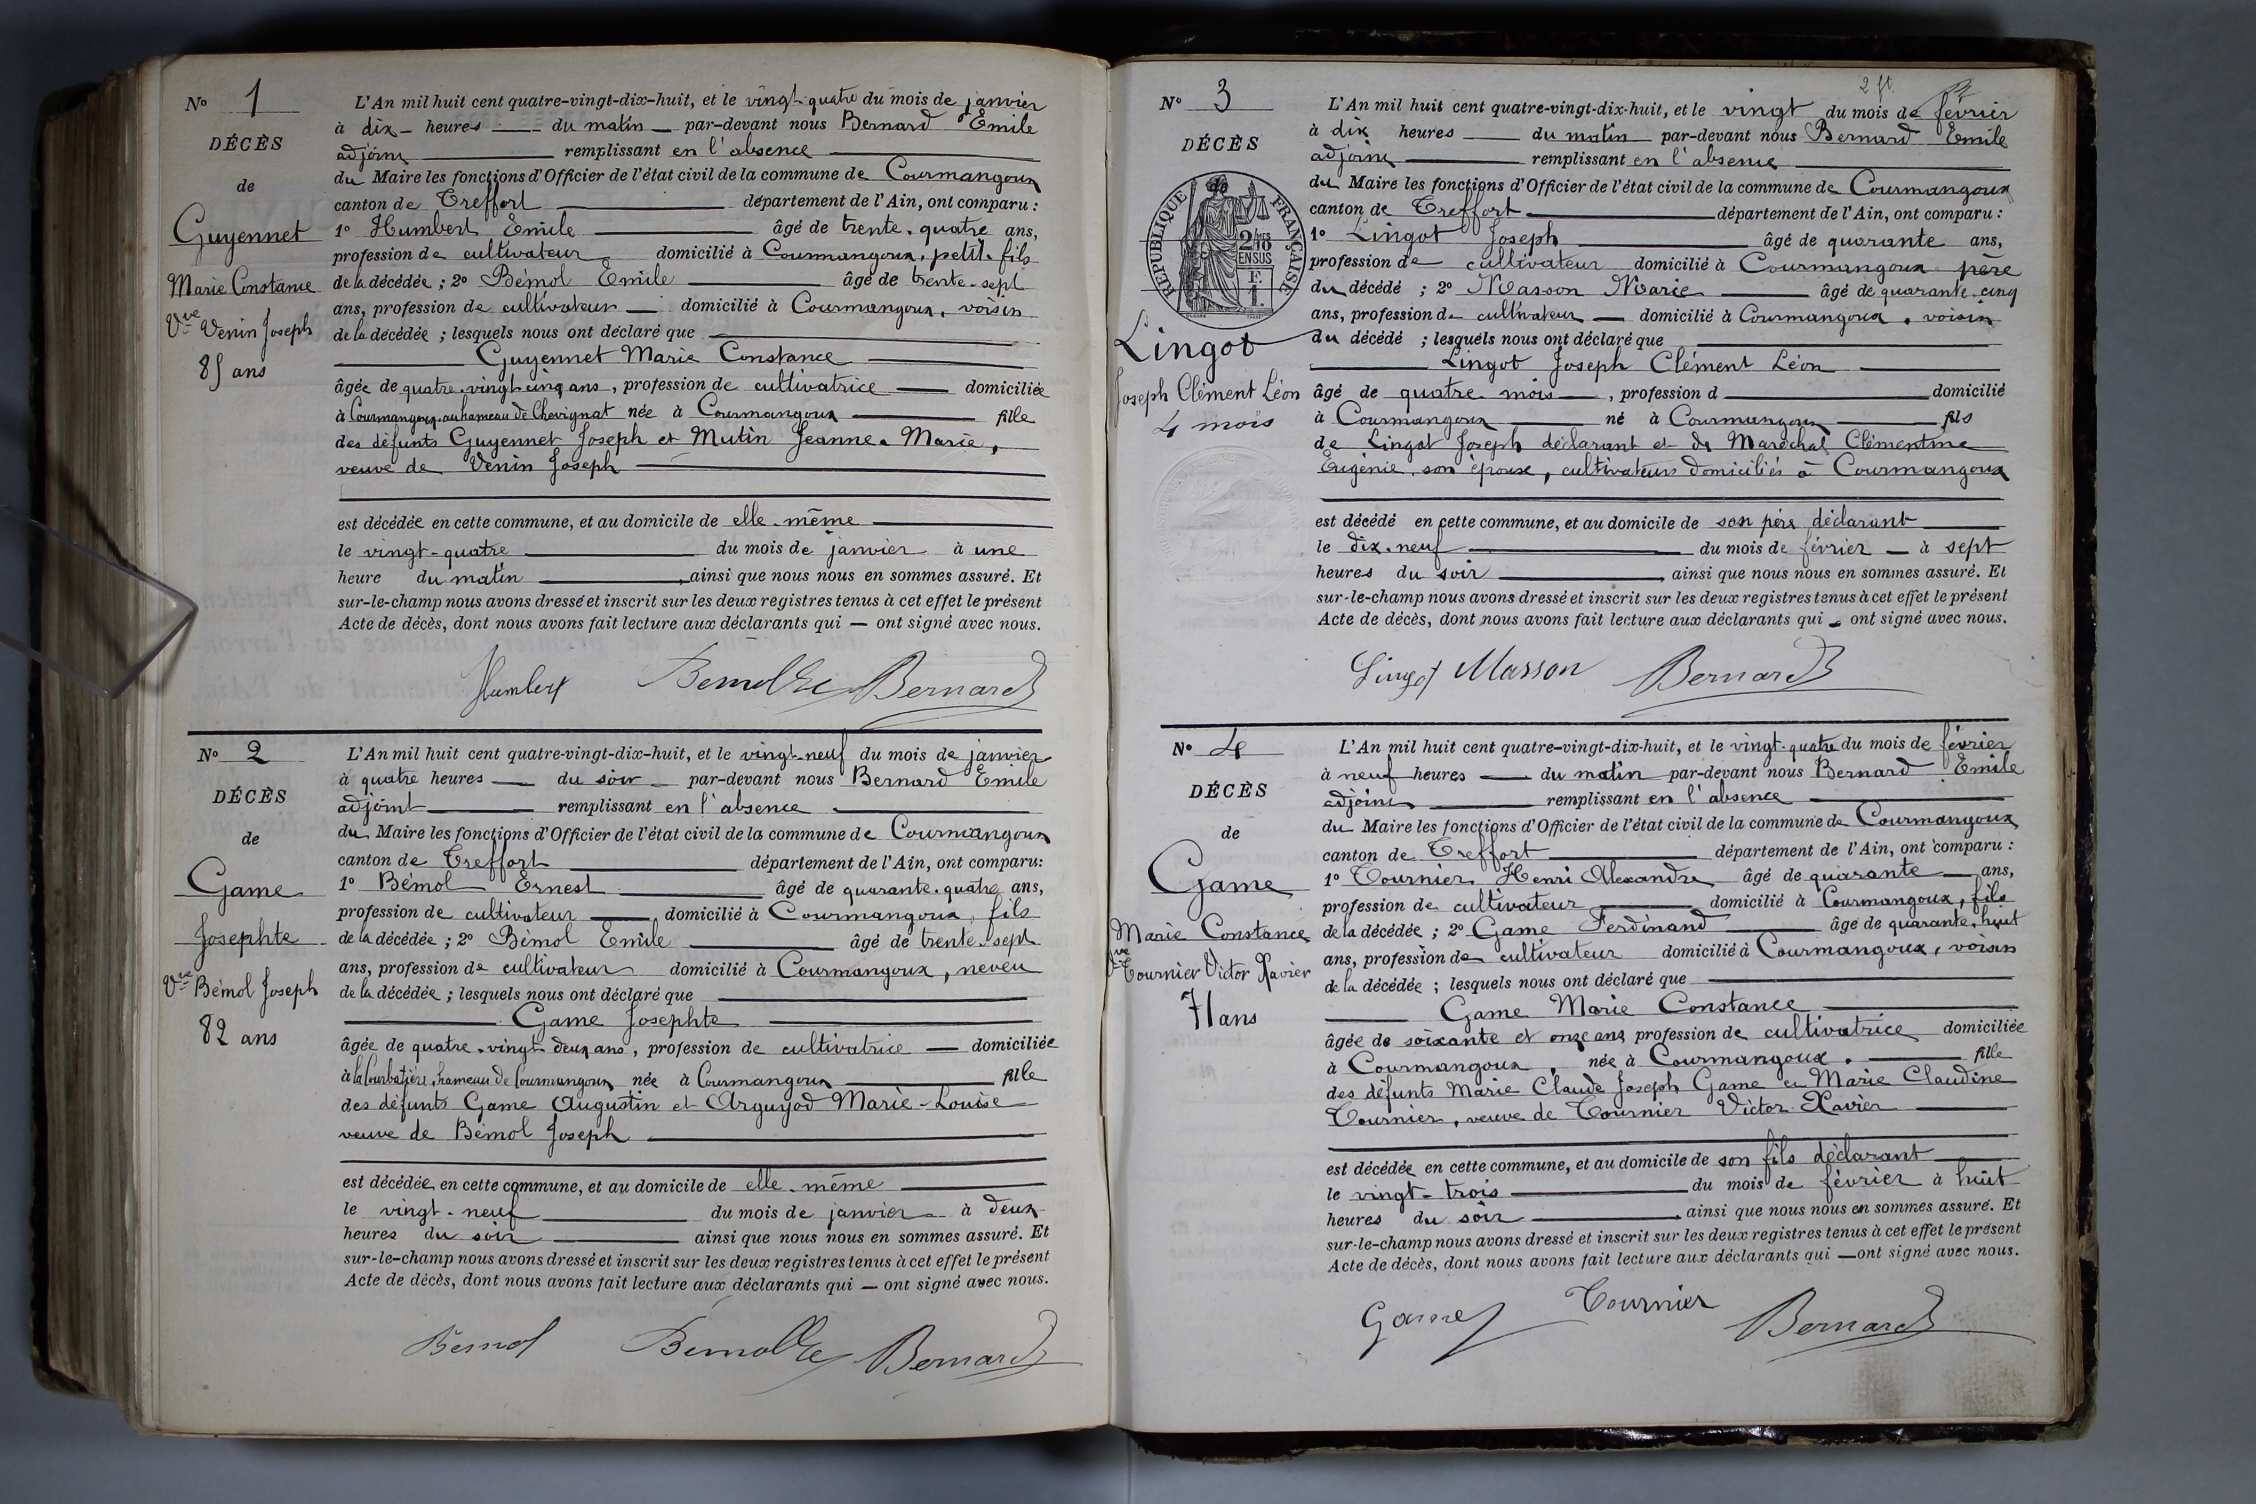 No 1
DÉCÈS
de
Guyennet
Marie Constance
Vve Venin Joseph
85 ans
L'An mil huit cent quatre-vingt-dix-huit, et le vingt-quatre du mois de janvier
à dix heures du matin par-devant nous Bernard Emile
adjoint remplissant en l'absence
du Maire les fonctions d'Officier de l'état civil de la commune de Courmangoux
canton de Treffort département de l'Ain, ont comparu :
1o Humbert Emile âgé de trente-quatre ans,
profession de cultivateur domicilié à Courmangoux, petit-fils
de la décédée ; 2o Bémol Emile âgé de trente-sept
ans, profession de cultivateur domicilié à Courmangoux, voisin
de la décédée ; lesquels nous ont déclaré que
Guyennet Marie Constance
âgée de quatre-vingt-cinq ans, profession de cultivatrice domiciliée
à Courmangoux au hameau de Chevignat née à Courmangoux fille
des défunts Guyennet Joseph et Mutin Jeanne-Marie,
veuve de Venin Joseph
est décédée en cette commune, et au domicile de elle-même
le vingt-quatre du mois de janvier à une
heure du matin, ainsi que nous nous en sommes assuré. Et
sur-le-champ nous avons dressé et inscrit sur les deux registres tenus à cet effet le présent
Acte de décès, dont nous avons fait lecture aux déclarants qui — ont signé avec nous.
Humbert Bemol Bernard
No 2
DÉCÈS
de
Game
Josephte
Vve Bémol Joseph
82 ans
L'An mil huit cent quatre-vingt-dix-huit, et le vingt-neuf du mois de janvier
à quatre heures du soir par-devant nous Bernard Emile
adjoint remplissant en l'absence
du Maire les fonctions d'Officier de l'état civil de la commune de Courmangoux
canton de Treffort département de l'Ain, ont comparu :
1o Bémol Ernest âgé de quarante-quatre ans,
profession de cultivateur domicilié à Courmangoux, fils
de la décédée ; 2o Bémol Emile âgé de trente-sept
ans, profession de cultivateur domicilié à Courmangoux, neveu
de la décédée ; lesquels nous ont déclaré que
Game Josephte
âgée de quatre-vingt deux ans, profession de cultivatrice domiciliée
à la Courbatière, hameau de Courmangoux née à Courmangoux fille
des défunts Game Augustin et Arguyod Marie-Louise
veuve de Bémol Joseph
est décédée en cette commune, et au domicile de elle-même
le vingt-neuf du mois de janvier à deux
heures du soir ainsi que nous nous en sommes assuré. Et
sur-le-champ nous avons dressé et inscrit sur les deux registres tenus à cet effet le présent
Acte de décès, dont nous avons fait lecture aux déclarants qui — ont signé avec nous.
Bemol Bémol Bernard
2 ft
No 3
DÉCÈS
de
REPUBLIQUE FRANÇAISE
2/10 MES
EN SUS
F.
1
Lingot
Joseph Clément Léon
4 mois
L'An mil huit cent quatre-vingt-dix-huit, et le vingt du mois de février
à dix heures du matin par-devant nous Bernard Emile
adjoint remplissant en l'absence
du Maire les fonctions d'Officier de l'état civil de la commune de Courmangoux
canton de Treffort département de l'Ain, ont comparu :
1o Lingot Joseph âgé de quarante ans,
profession de cultivateur domicilié à Courmangoux père
du décédé ; 2o Masson Marie âgé de quarante-cinq
ans, profession de cultivateur domicilié à Courmangoux, voisin
du décédé ; lesquels nous ont déclaré que
Lingot Joseph Clément Léon
âgé de quatre mois, profession d domicilié
à Courmangoux né à Courmangoux fils
de Lingot Joseph déclarant et de Maréchal Clémentine
Eugénie, son épouse, cultivateurs domiciliés à Courmangoux
est décédé en cette commune, et au domicile de son père déclarant
le dix-neuf du mois de février à sept
heures du soir, ainsi que nous nous en sommes assuré. Et
sur-le-champ nous avons dressé et inscrit sur les deux registres tenus à cet effet le présent
Acte de décès, dont nous avons fait lecture aux déclarants qui — ont signé avec nous.
Lingot Masson Bernard
No 4
DÉCÈS
de
Game
Marie Constance
Vve Tournier Victor Xavier
71 ans
L'An mil huit cent quatre-vingt-dix-huit, et le vingt-quatre du mois de février
à neuf heures du matin par-devant nous Bernard Emile
adjoint remplissant en l'absence
du Maire les fonctions d'Officier de l'état civil de la commune de Courmangoux
canton de Treffort département de l'Ain, ont comparu :
1o Tournier Henri Alexandre âgé de quarante ans,
profession de cultivateur domicilié à Courmangoux, fils
de la décédée ; 2o Game Ferdinand âgé de quarante-huit
ans, profession de cultivateur domicilié à Courmangoux, voisin
de la décédée ; lesquels nous ont déclaré que
Game Marie Constance
âgée de soixante et onze ans profession de cultivatrice domiciliée
à Courmangoux, née à Courmangoux. fille
des défunts Marie Claude Joseph Game et Marie Claudine
Tournier, veuve de Tournier Victor Xavier
est décédée en cette commune, et au domicile de son fils déclarant
le vingt-trois du mois de février à huit
heures du soir, ainsi que nous nous en sommes assuré. Et
sur-le-champ nous avons dressé et inscrit sur les deux registres tenus à cet effet le présent
Acte de décès, dont nous avons fait lecture aux déclarants qui — ont signé avec nous.
Game Tournier Bernard